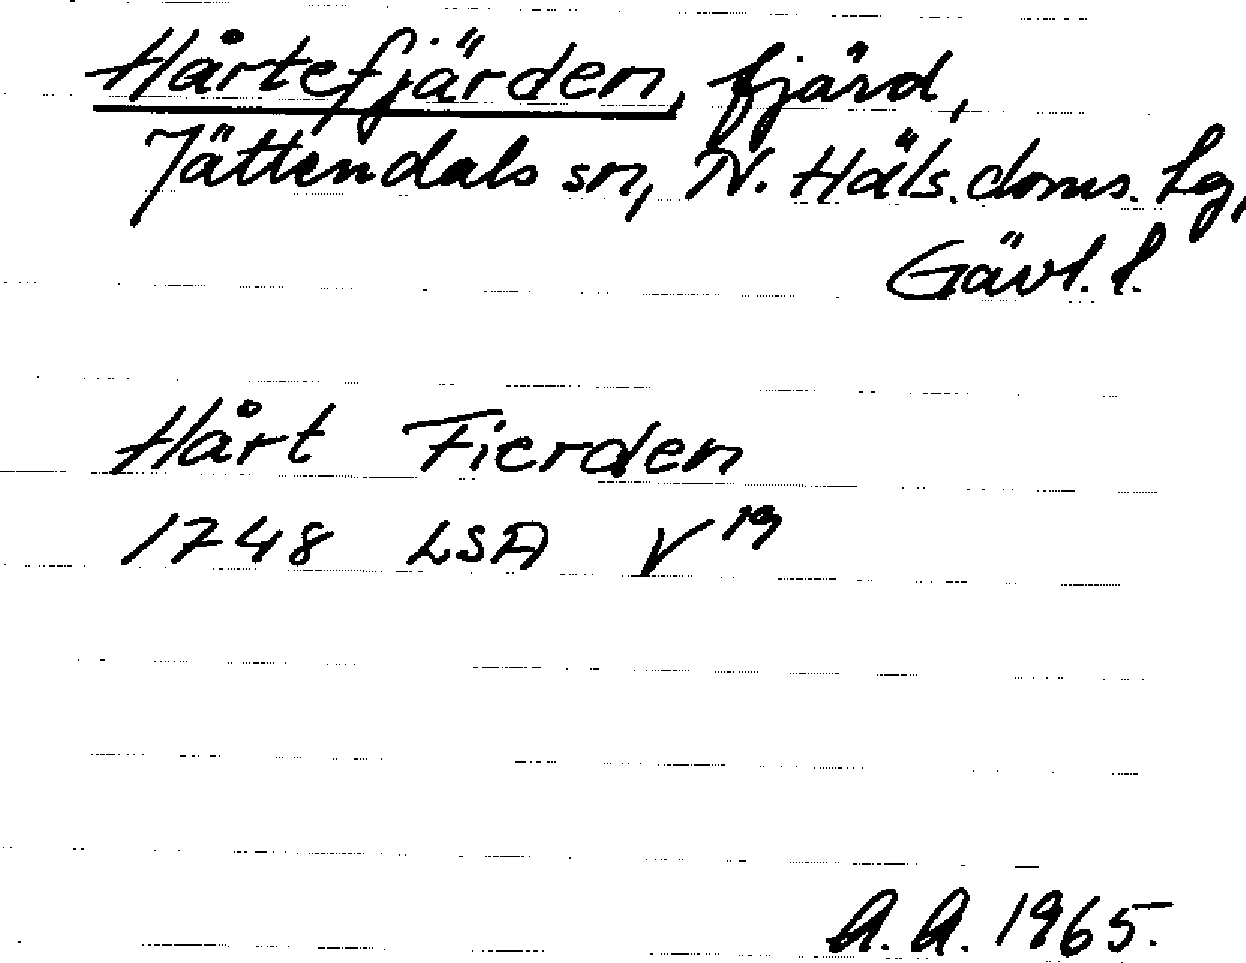 Hårtefjärden, fjärd,
Jättendals sn, N. Häls. doms. lg,
Gävl. l.
Hårt Fierden
1748 LSA V 19
A.A. 1965.